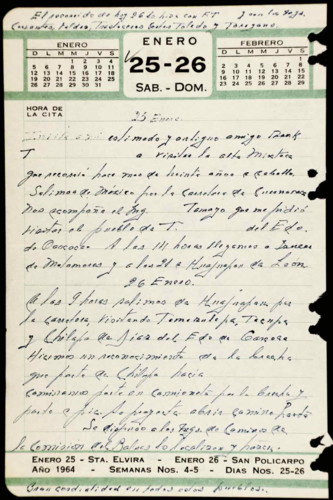 El recorrido de hoy 26 lo hice con F.T. y con los Ings.
ENERO
D L M M J V S
1 2 3 4
5 6 7 8 9 10 11
12 13 14 15 16 17 18
19 20 21 22 23 24 25
26 27 28 29 30 31
ENERO
25-26
SAB. - DOM.
FEBRERO
D L M M J V S
1
2 3 4 5 6 7 8
9 10 11 12 13 14 15
16 17 18 19 20 21 22
23 24 25 26 27 28 29
HORA DE
LA CITA
25 Enero
estimado y antiguo amigo Frank
T a visitar la alta Mixteca
que recorrió hace mas de treinta años a caballo
Salimos de México por la carretera de Cuernavaca
Nos acompaña el Ing. Tamayo que me pidió
visitar el pueblo de T. del Edo.
de Oaxaca A las 14 horas llegamos a
de Matamoros y a las 21 a Huajuapan de León
26 Enero.
A las 9 horas salimos de Huajuapan por
la carretera, visitando Tamazulapa,
y Chilapa de Diaz del Edo de Oaxaca
Hicimos un reconocimiento de la brecha
que parte de Chilapa hacia
Caminamos parte en camioneta por la brecha y
parte a pie. Se proyecta abrir camino hasta
Se dieron a los Ings. de Caminos de
la Comision del Balsas lo localicen y hagan.
ENERO 25 - STA. ELVIRA - ENERO 26 - SAN POLICARPO
AÑO 1964 - SEMANAS Nos. 4-5 - DIAS Nos. 25-26
Gran cordialidad en todos estos pueblos.